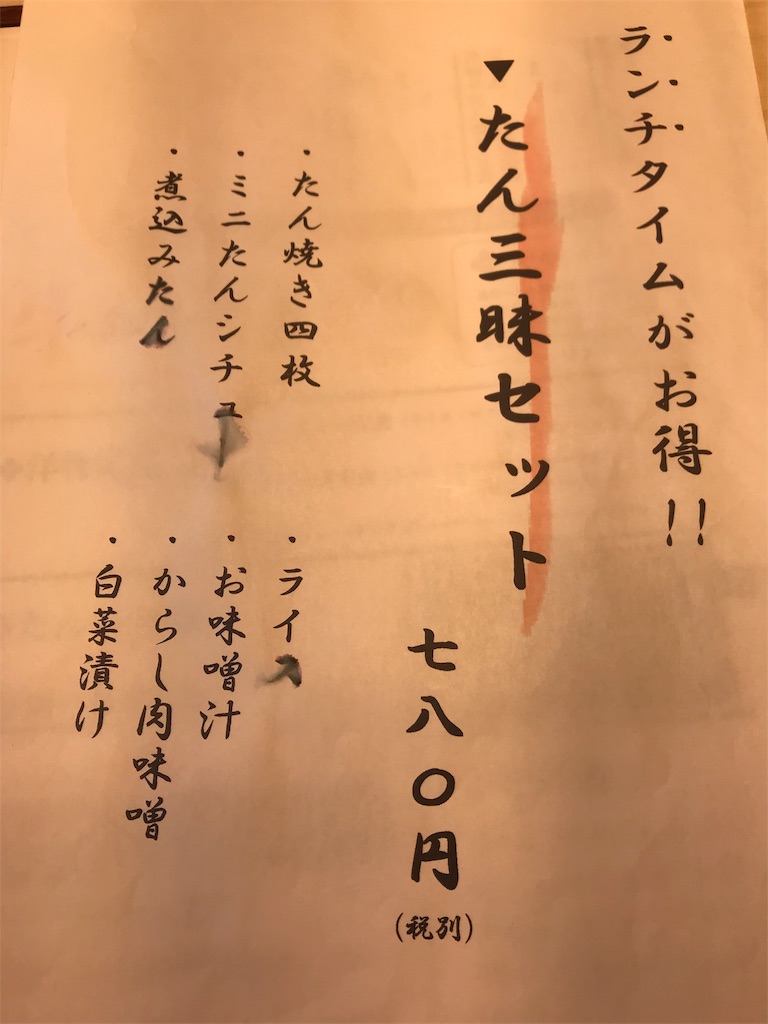 ランチタイムがお得!!
▼たん三昧セット
七八〇円
(税別)
・たん焼き四枚
・ミニたんシチュー
・煮込みたん
・ライス
・お味噌汁
・からし肉味噌
・白菜漬け